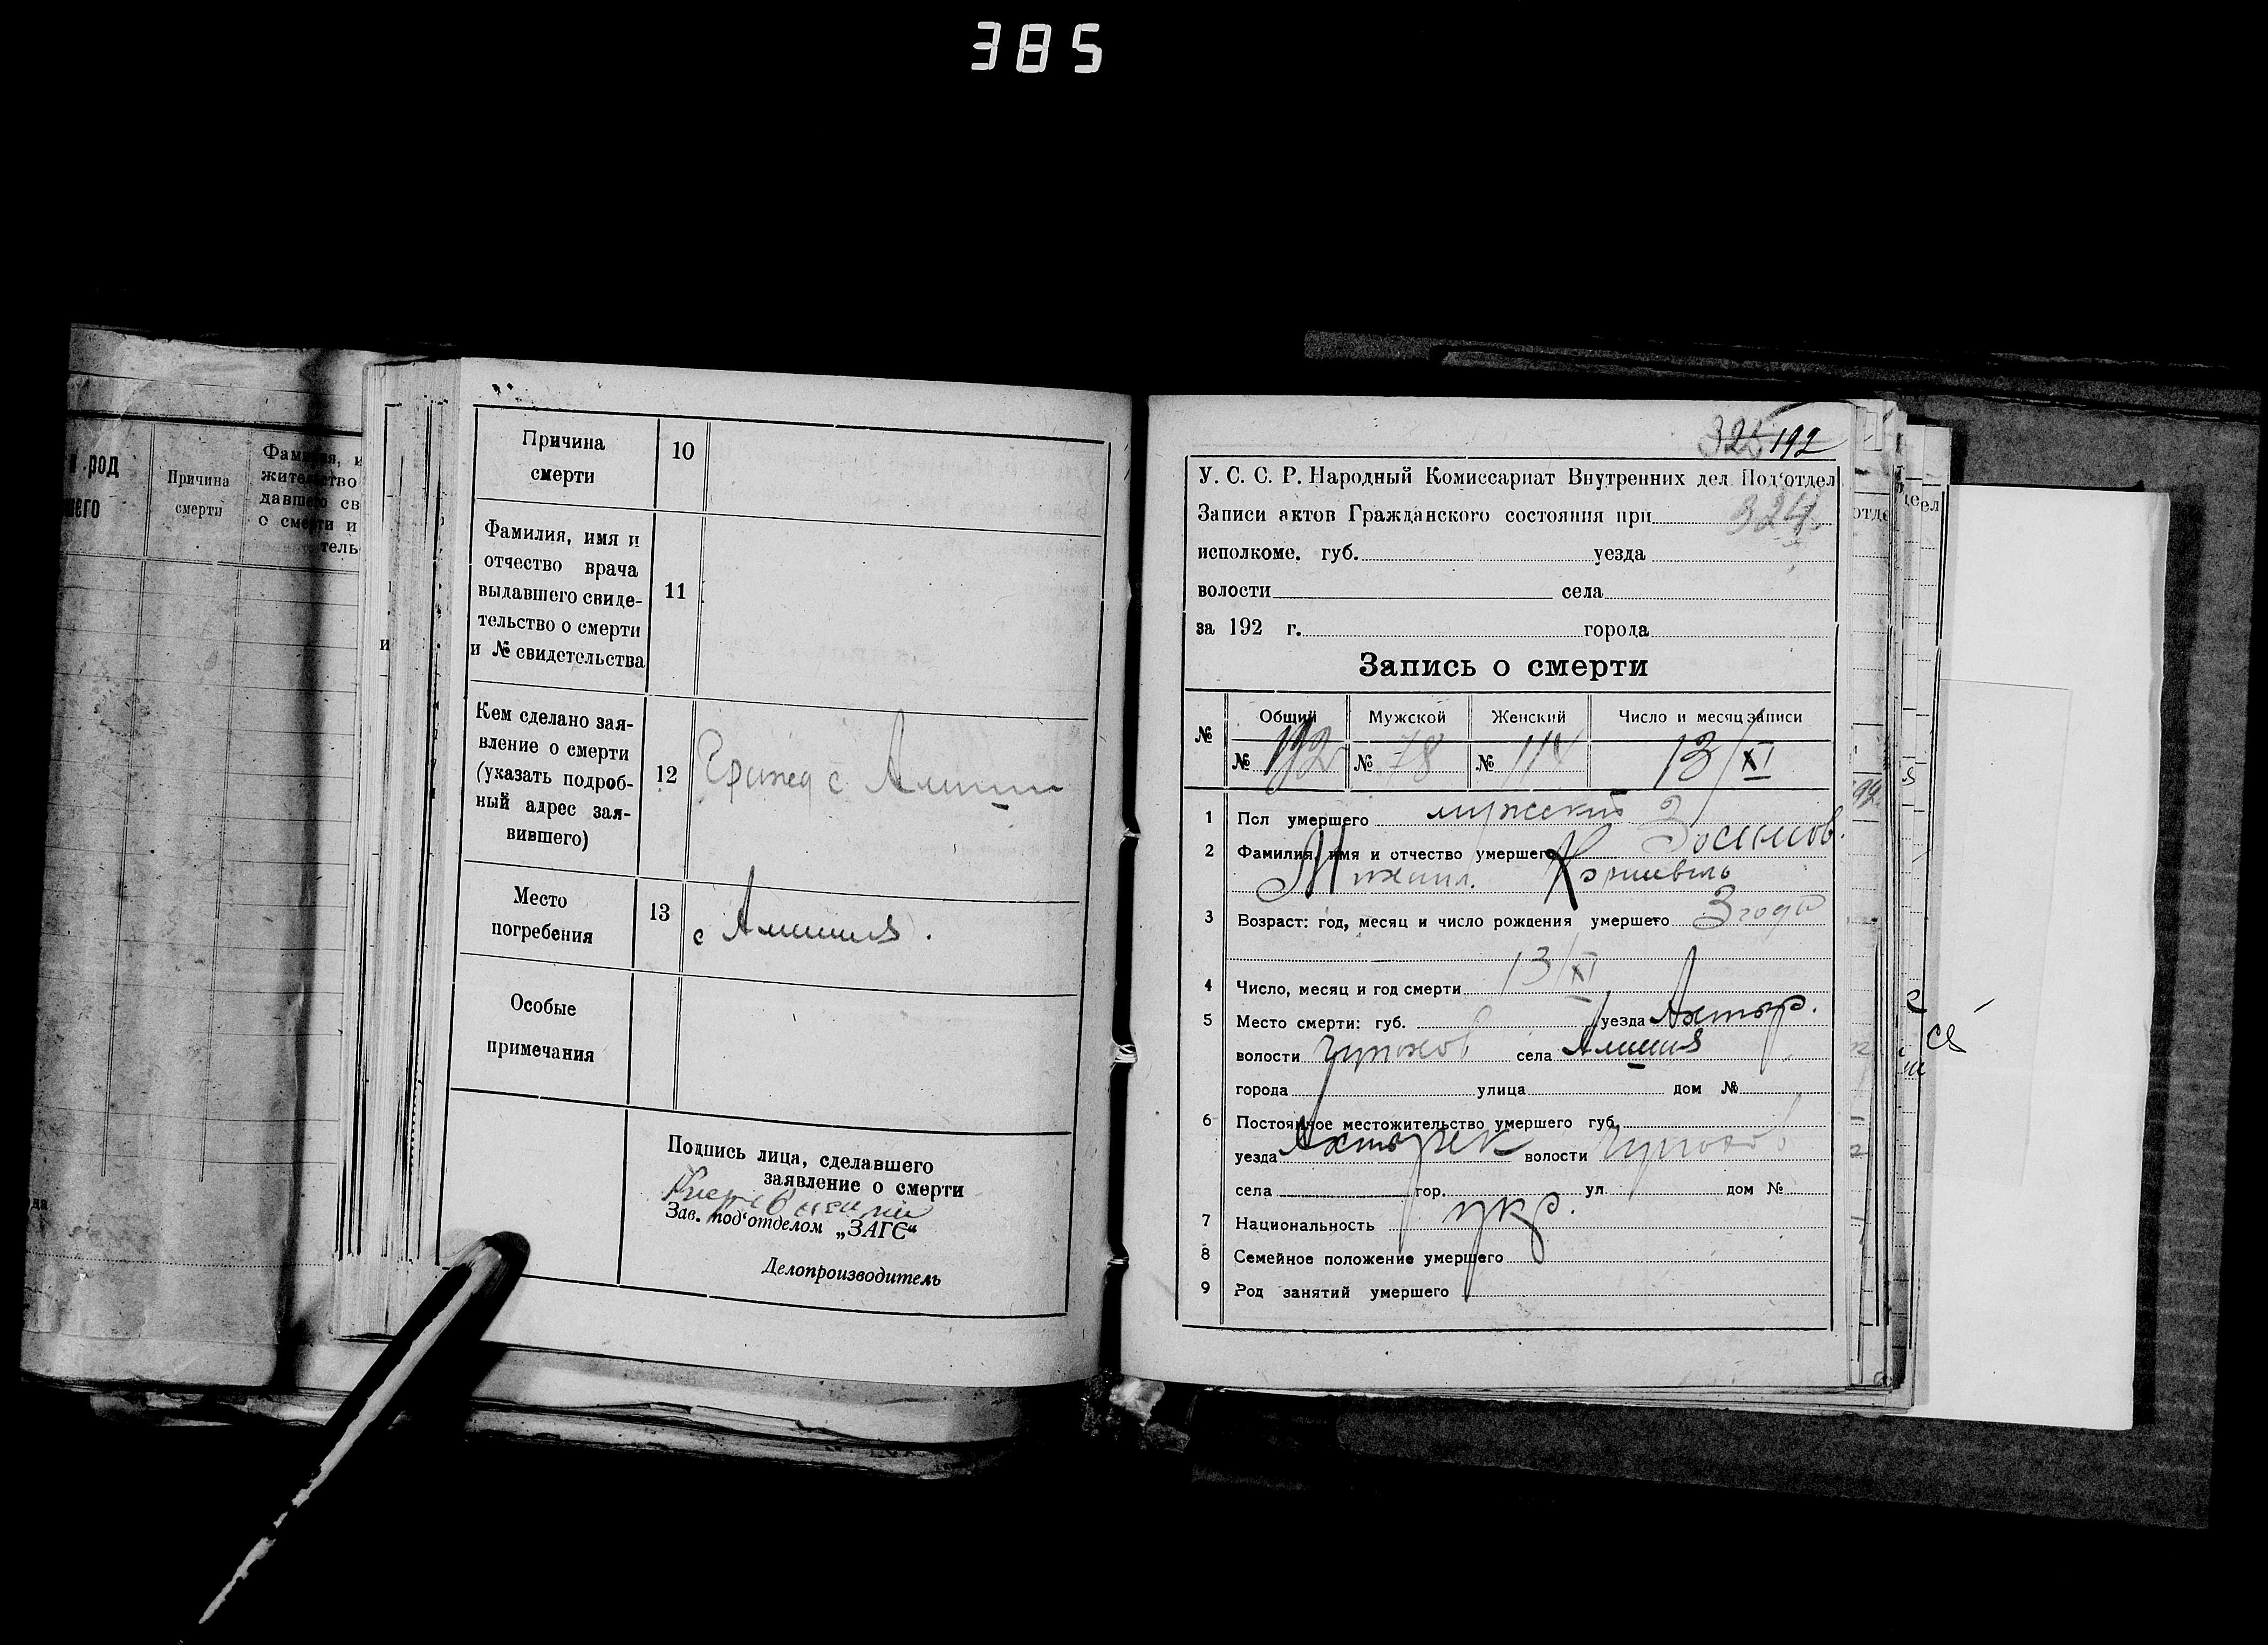 385
род
шего
Причина
смерти
Фамилия, и
жительство
давшего св
о смерти и
тель
и
Причина
смерти
10
Фамилия, имя и
отчество врача
выдавшего свиде-
тельство о смерти
и № свидетельства
11
Кем сделано зая-
вление о смерти
(указать подроб-
ный адрес зая-
вившего)
12
с
Место
погребения
13
с
Особые
примечания
Подпись лица, сделавшего
заявление о смерти
Зав. под‘отделом „ЗАГС“
Делопроизводитель
325 192
У. С. С. Р. Народный Комиссариат Внутренних дел Под‘отдел
Записи актов Гражданского состояния при 324
исполкоме. губ. уезда
волости села
за 192 г. города
Запись о смерти
№ Общий Мужской Женский Число и месяц записи
№ 192 № 78 № 114 13/XI
1 Пол умершего мужской
2 Фамилия, имя и отчество умершего
Михаил.
3 Возраст: год, месяц и число рождения умершего 3 года
4 Число, месяц и год смерти 13/XI
5 Место смерти: губ. уезда Ахтыр.
волости села
города улица дом №
6 Постоянное местожительство умершего губ.
уезда волости
села гор. ул. дом №
7 Национальность укр.
8 Семейное положение умершего
9 Род занятий умершего